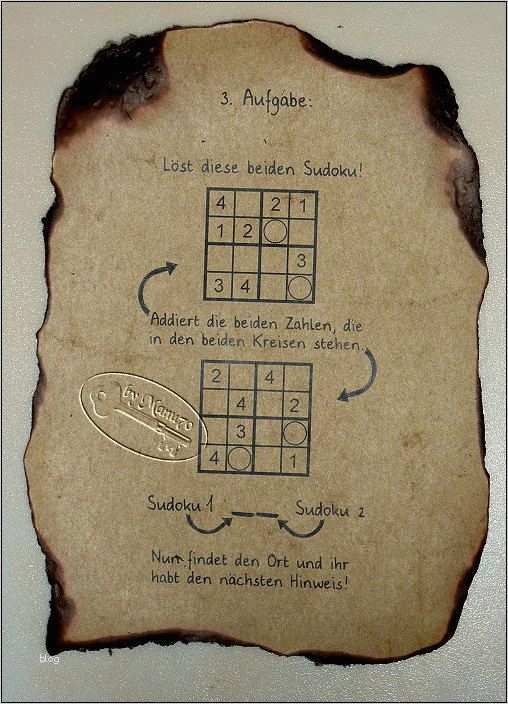 3. Aufgabe:
Löst diese beiden Sudoku!
4 2 1
1 2
3
3 4
Addiert die beiden Zahlen, die
in den beiden Kreisen stehen.
2 4
4 2
3
4 1
by Manu70
Sudoku 1 __ __ Sudoku 2
Nun findet den Ort und ihr
habt den nächsten Hinweis!
blog